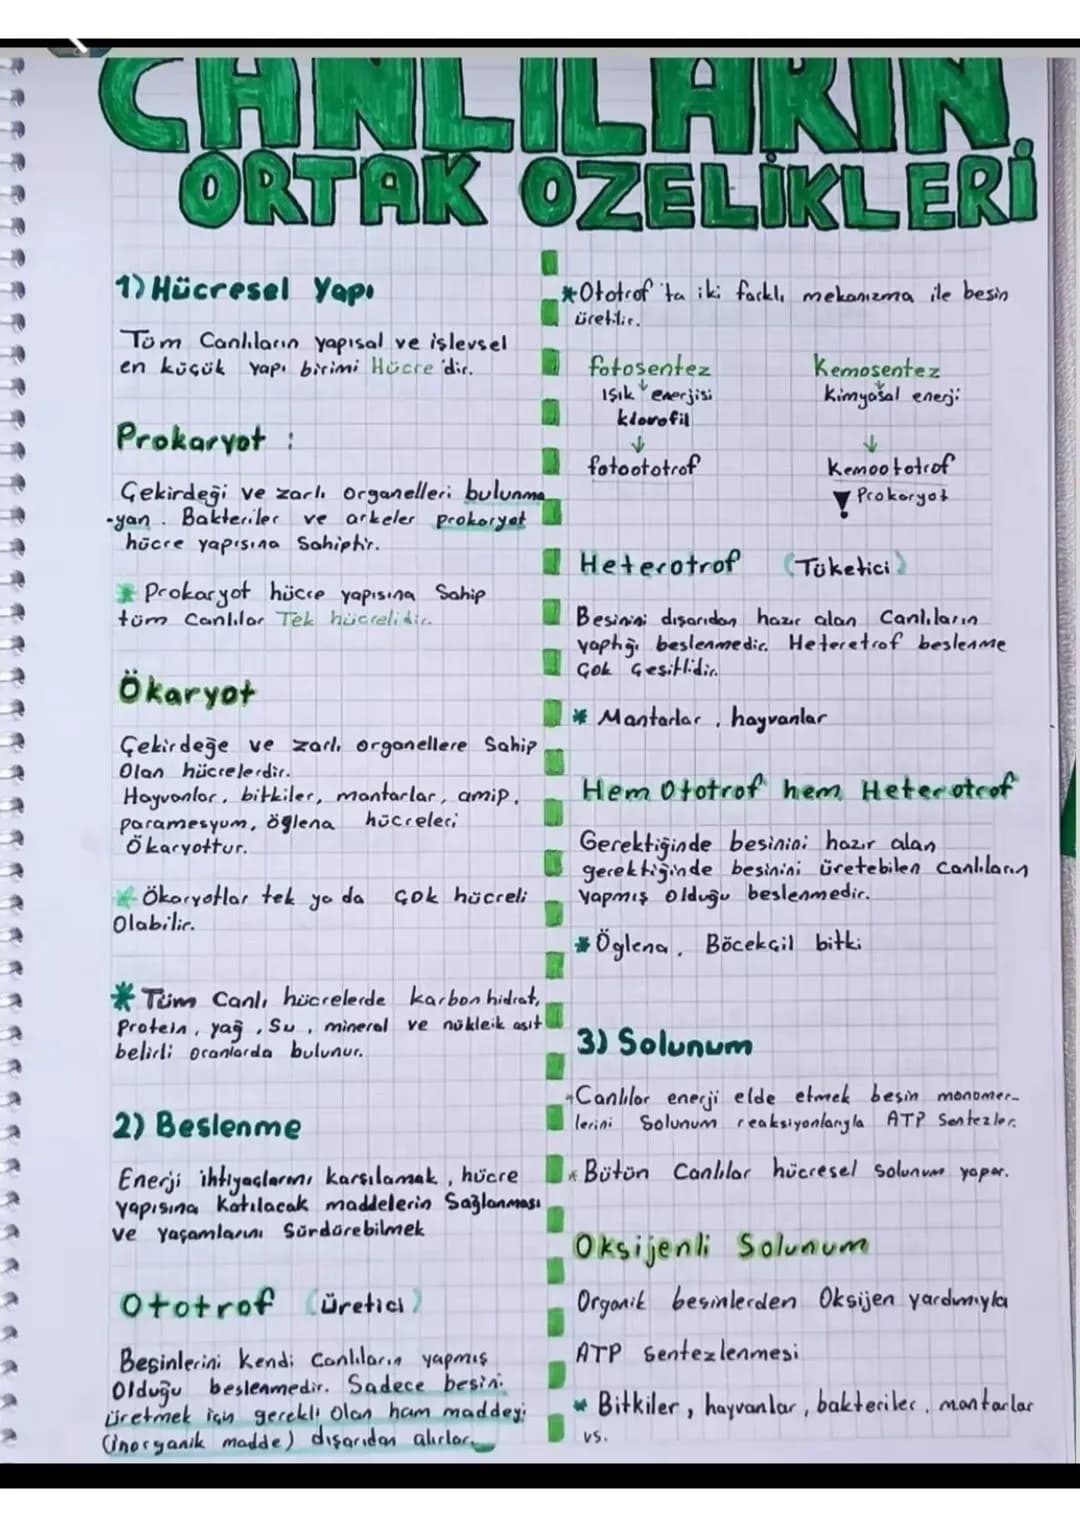 CANLILARIN
ORTAK OZELİKLERİ
1) Hücresel Yapı
Tüm Canlıların yapısal ve işlevsel
en küçük yapı birimi Hücre'dir.
Prokaryot :
Çekirdeği ve zarlı organelleri bulunma
-yan. Bakteriler ve arkeler prokaryot
hücre yapısına Sahiptir.
* Prokaryot hücre yapısına Sahip
tüm Canlılar Tek hücrelidir.
Ökaryot
Çekirdeğe ve zarlı organellere Sahip
Olan hücrelerdir.
Hayvanlar, bitkiler, mantarlar, amip,
paramesyum, öglena hücreleri
Ökaryottur.
* Ökaryotlar tek ya da Çok hücreli
Olabilir.
* Tüm Canlı hücrelerde karbonhidrat,
Protein, yağ, Su, mineral ve nükleik asit
belirli oranlarda bulunur.
2) Beslenme
Enerji ihtiyaçlarını karşılamak, hücre
yapısına Katılacak maddelerin Sağlanması
ve Yaşamlarını Sürdürebilmek
Ototrof (üretici)
Besinlerini Kendi Canlıların yapmış
Olduğu beslenmedir. Sadece besini
üretmek için gerekli Olan ham maddeyi
(inorganik madde) dışarıdan alırlar.
* Ototrof'ta iki farklı mekanizma ile besin
üretilir.
fotosentez Kemosentez
↓ ↓
Işık enerjisi Kimyasal enerji
klorofil
↓ ↓
fotoototrof Kemoototrof
Prokaryot
Heterotrof (Tüketici)
Besinini dışarıdan hazır alan Canlıların
yaptığı beslenmedir. Heteretrof beslenme
Çok Çeşitlidir.
* Mantarlar, hayvanlar
Hem Ototrof hem Heterotrof
Gerektiğinde besinini hazır alan
gerektiğinde besinini üretebilen Canlıların
Yapmış Olduğu beslenmedir.
* Öglena, Böcekçil bitki
3) Solunum
* Canlılar enerji elde etmek besin monomer-
lerini Solunum reaksiyonlarıyla ATP Sentezler.
* Bütün Canlılar hücresel solunum yapar.
Oksijenli Solunum
Organik besinlerden Oksijen yardımıyla
ATP Sentezlenmesi
* Bitkiler, hayvanlar, bakteriler, mantarlar
vs.